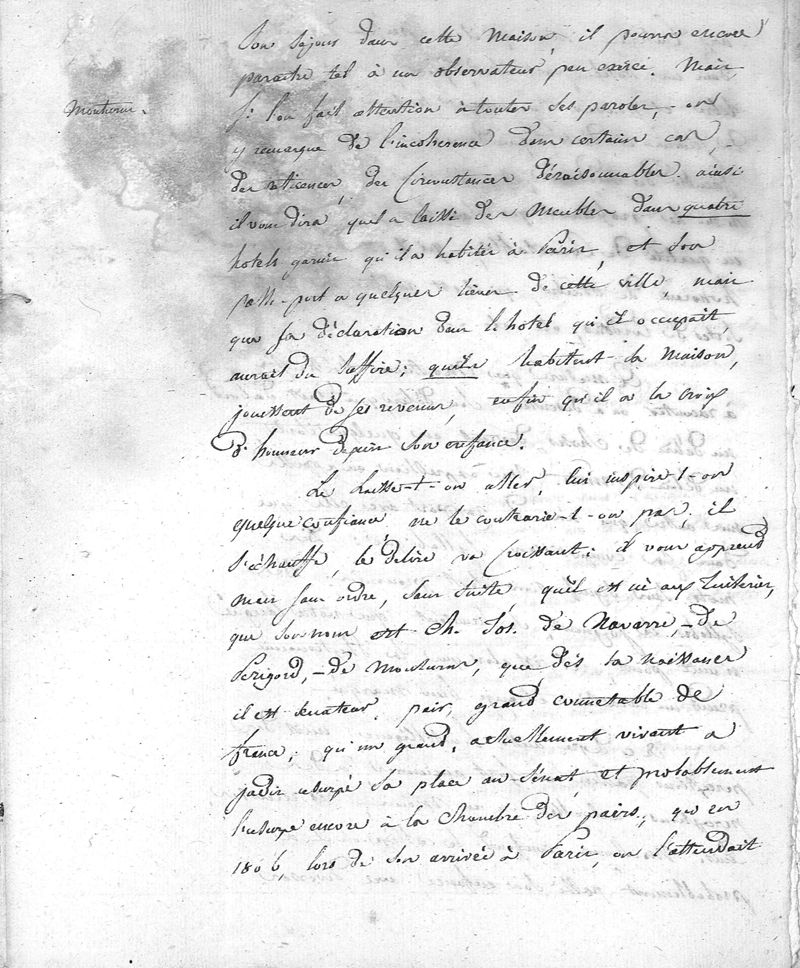 son séjour dans cette maison, il pourra encore
paraître tel à un observateur peu exercé. Mais,
si l'on fait attention à toutes ses paroles, on
y remarque de l'incohérence dans certains cas,
des réticences, des Circonstances déraisonnables. ainsi
il vous dira qu'il a laissé des Meubles dans quatre
hotels garnis qu'il a habités à Paris, et son
passe-port a quelques lieues de cette ville, mais
que sa déclaration dans le hotel qu'il occupait,
aurait du suffire; qu'il a habituel la maison,
jouissant de ses revenus, enfin qu'il a la croix
d'honneur depuis son enfance.
Le laisse-t-on aller, lui inspire-t-on
quelque confiance, ne le contrarie-t-on pas, il
s'échauffe, le délire va Croissant: il vous apprend
mais sans ordre, sans suite, qu'il est né aux Tuileries,
que son nom est Ch. Jos. de Navarre, - de
Périgord, - de Monturus, que dès sa naissance
il est sénateur, pair, grand connétable de
france; qu'un grand, actuellement vivant a
jadis usurpé sa place au Sénat et probablement
l'usurpe encore à la Chambre des pairs; qu'en
1806, lors de son arrivée à Paris, on l'attendait